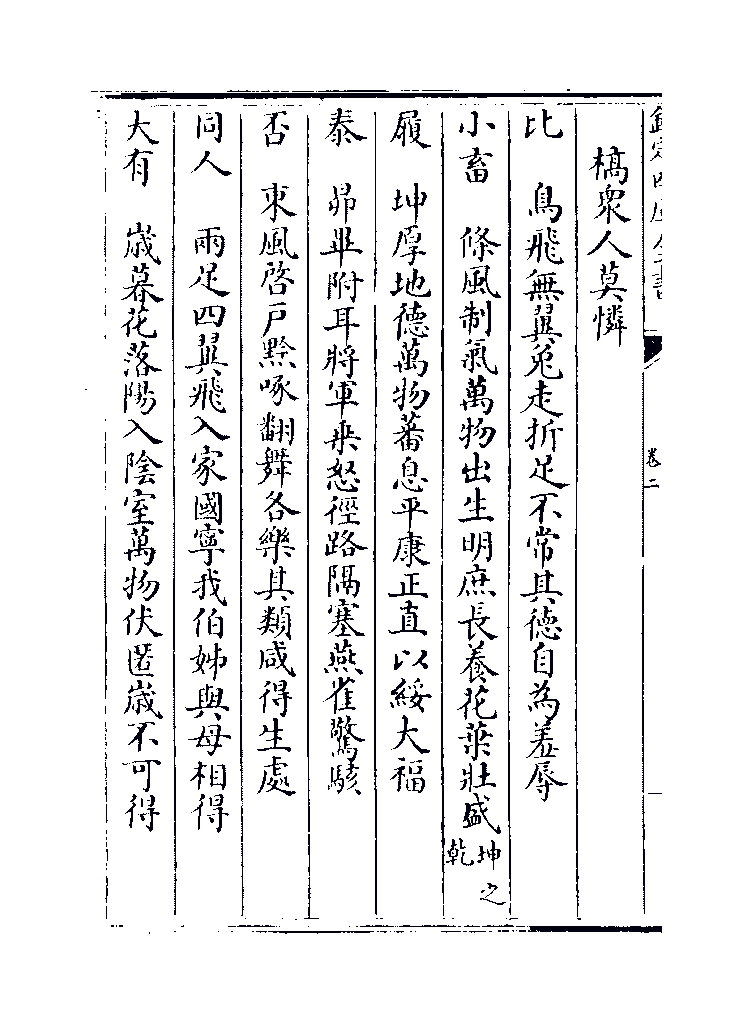 欽定四庫全書
卷二
槁衆人莫憐
比　鳥飛無翼兔走折足不常其德自為羞辱
小畜　條風制氣萬物出生明庶長養花葉壯盛坤之乾
履　坤厚地德萬物蕃息平康正直以綏大福
泰　昴畢附耳將軍乗怒徑路隔塞燕雀驚駭
否　東風啓戶黔啄翻舞各樂其類咸得生處
同人　兩足四翼飛入家國寧我伯姊與母相得
大有　嵗暮花落陽入陰室萬物伏匿嵗不可得